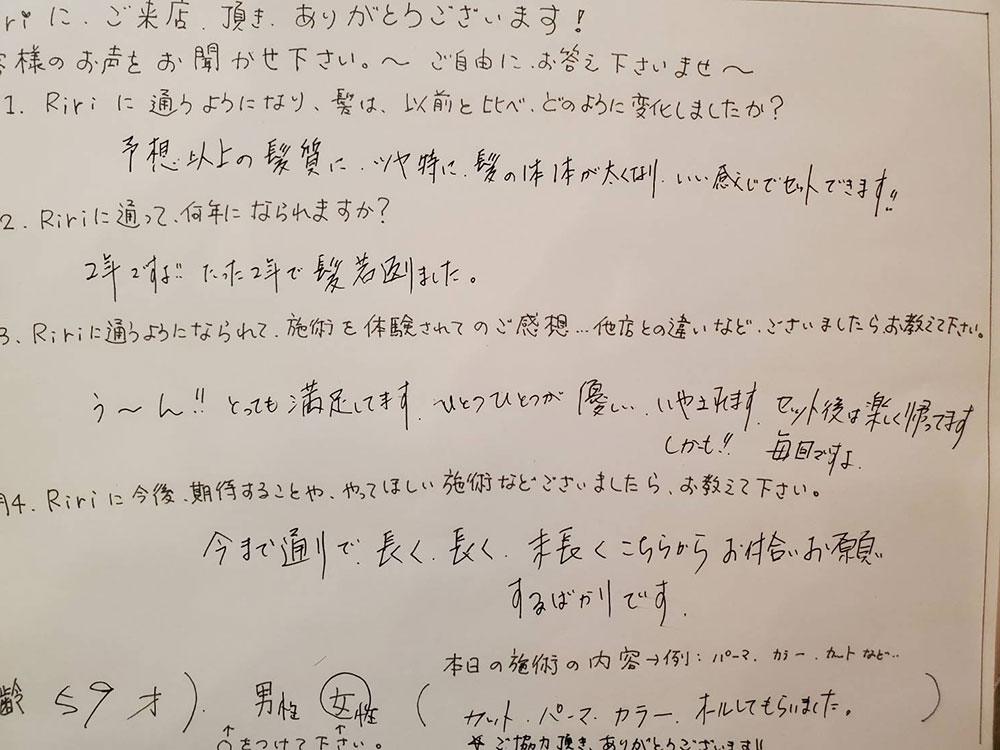 riに、ご来店、頂き、ありがとうございます!
客様のお声をお聞かせ下さい。～ ご自由に、お答え下さいませ～
1. Ririに通うようになり、髪は、以前と比べ、どのように変化しましたか?
予想以上の髪質に、ツヤ特に、髪の1本1本が太くなり、いい感じでセットできます!!
2. Ririに通って、何年になられますか?
2年ですよ!! たった2年で髪若返りました。
3. Ririに通うようになられて、施術を体験されてのご感想…他店との違いなど、ございましたらお教えて下さい。
う～ん!! とっても満足してます、ひとつひとつが優しい、いやされます、セット後は楽しく帰ってます
しかも!! 毎回ですよ
問4. Ririに今後、期待することや、やってほしい施術などございましたら、お教えて下さい。
今まで通りで、長く、長く、末長くこちらからお付合いお願い
するばかりです、
本日の施術の内容→例:パーマ、カラー、カットなど…
齢 59才). 男性 女性 (カット、パーマ、カラー、オールしてもらいました。)
↑ ↑
○をつけて下さい。 ☆ご協力頂き、ありがとうございます!!